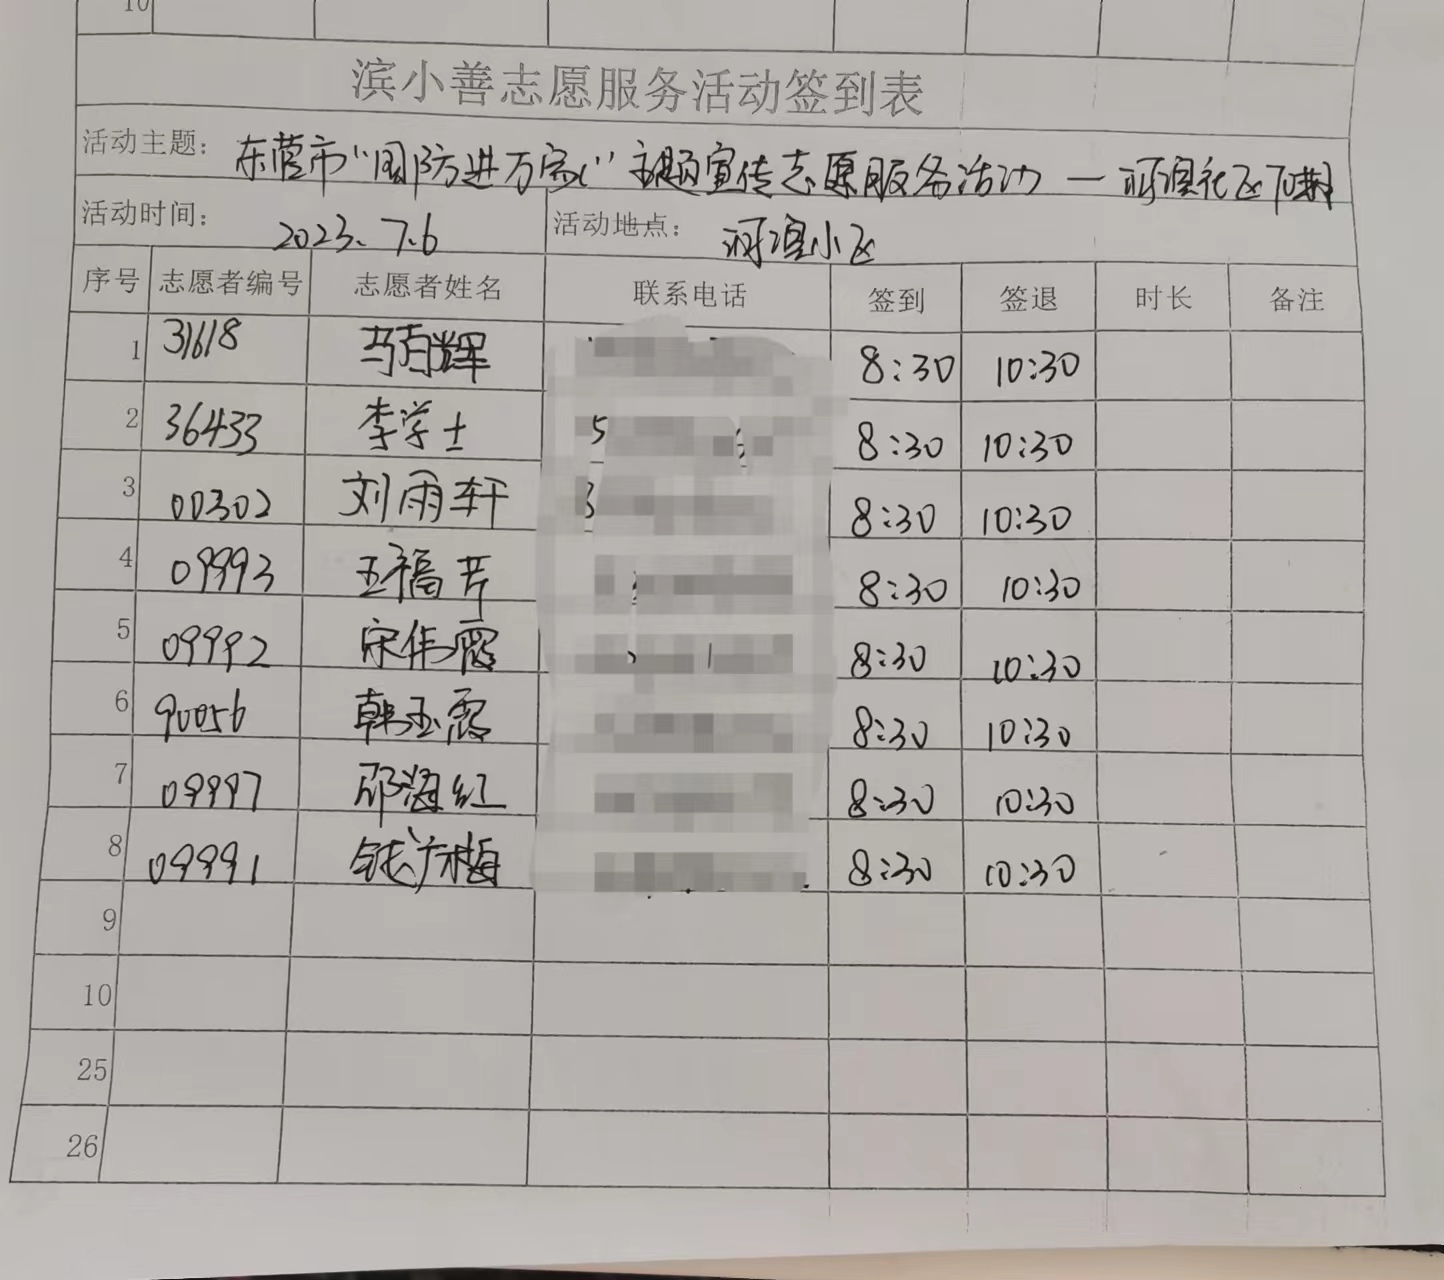 10
滨小善志愿服务活动签到表
活动主题: 东营市“国防进万家”主题宣传志愿服务活动 — 河滨社区
活动时间: 2023.7.6 活动地点: 河滨小区
序号 志愿者编号 志愿者姓名 联系电话 签到 签退 时长 备注
1 31618 马百辉 8:30 10:30
2 36433 李学士 5 8:30 10:30
3 00302 刘雨轩 8:30 10:30
4 09993 王福芹 8:30 10:30
5 09992 宋伟霞 8:30 10:30
6 90056 韩玉霞 8:30 10:30
7 09997 邱海红 8:30 10:30
8 09991 钱广梅 8:30 10:30
9
10
25
26